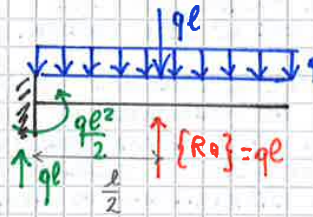 qℓ
qℓ²/2
{Rq}=qℓ
qℓ
ℓ/2